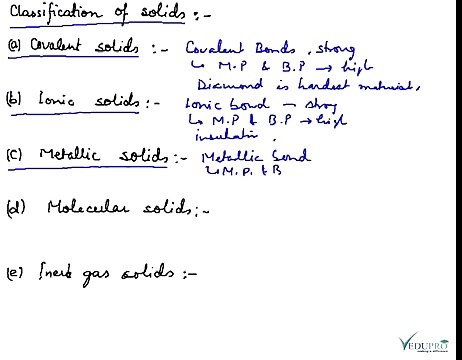 Classification of solids :-
(a) Covalent solids :- Covalent Bonds, strong
↳ M.P & B.P → high
Diamond is hardest material.
(b) Ionic solids :- Ionic bond - strong
↳ M.P & B.P → high
(c) Metallic solids :- Metallic bond
↳ M.P. & B
(d) Molecular solids :-
(e) Inert gas solids :-
VEDUPRO